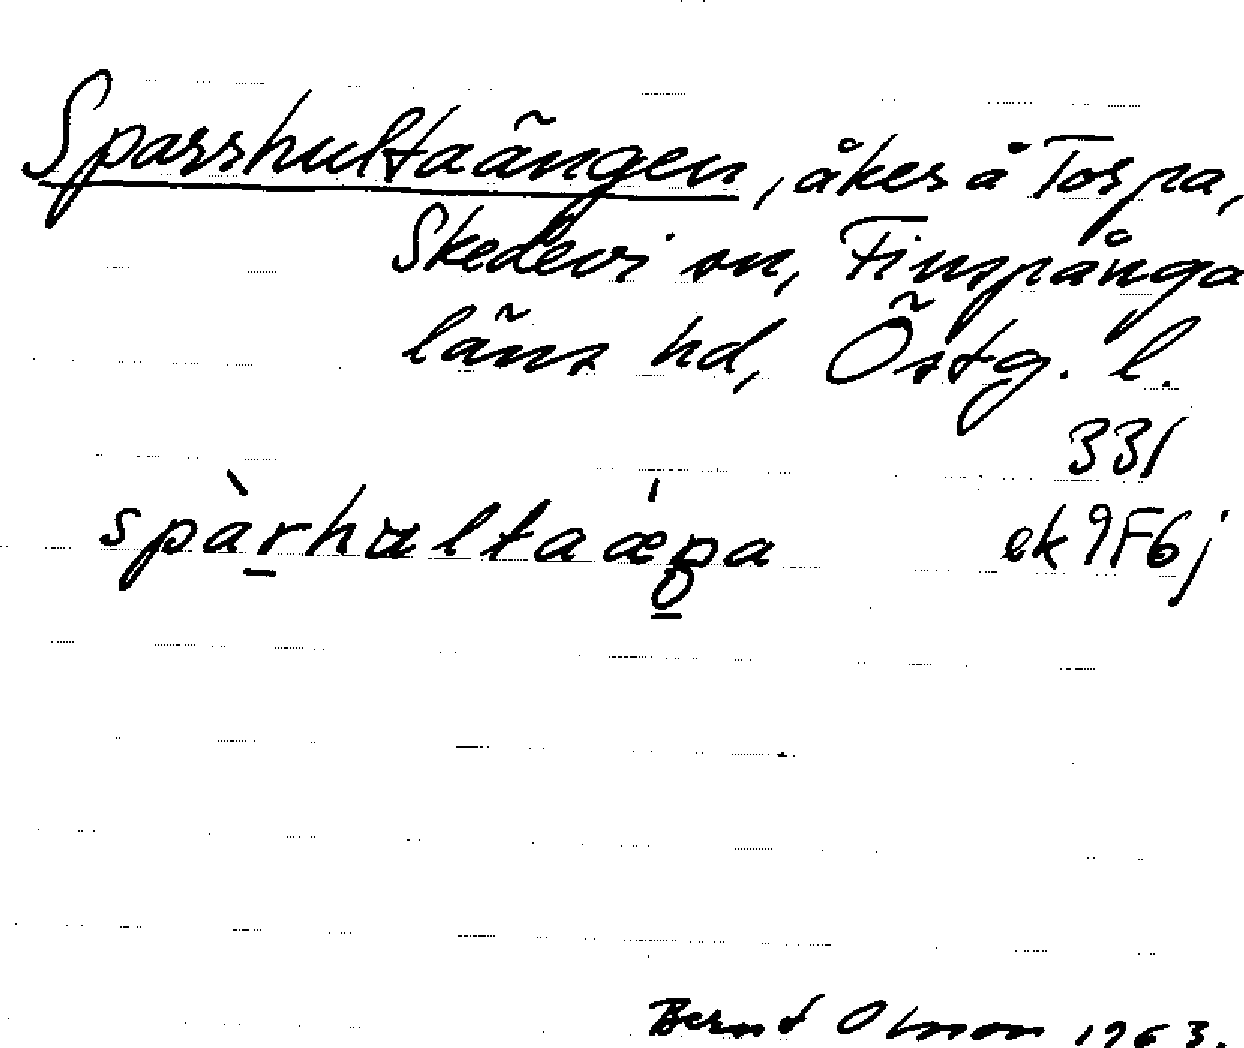 Sparrhultaängen, åker å Torpa,
Skedevi sn, Finspånga
läns hd, Östg. l.
331
spàrhultaæ̍ŋa ek 9F6j
Bernt Olsson 1963.